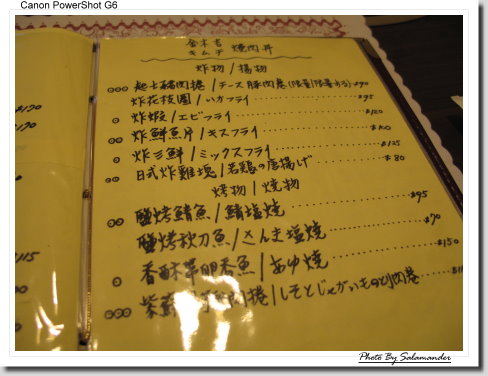 Canon PowerShot G6
金木吉
キムチ 燒肉丼
炸物 / 揚物
起士豬肉捲 / チーズ豚肉巻 $90
炸花枝圈 / いかフライ $95
炸蝦 / エビフライ $120
炸鮮魚片 / キスフライ $100
炸三鮮 / ミックスフライ $125
日式炸雞塊 / 若鶏の唐揚げ $80
烤物 | 焼物
鹽烤鯖魚 / 鯖塩焼 $95
鹽烤秋刀魚 / さんま塩焼 $70
香酥 卵香魚 / あゆ焼 $150
紫蘇 肉捲 / しそとじゃがいもの 肉巻
$170
$115
Photo By Salamander